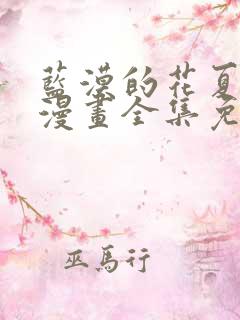 藍漠的花夏
漫畫全集免
巫馬行